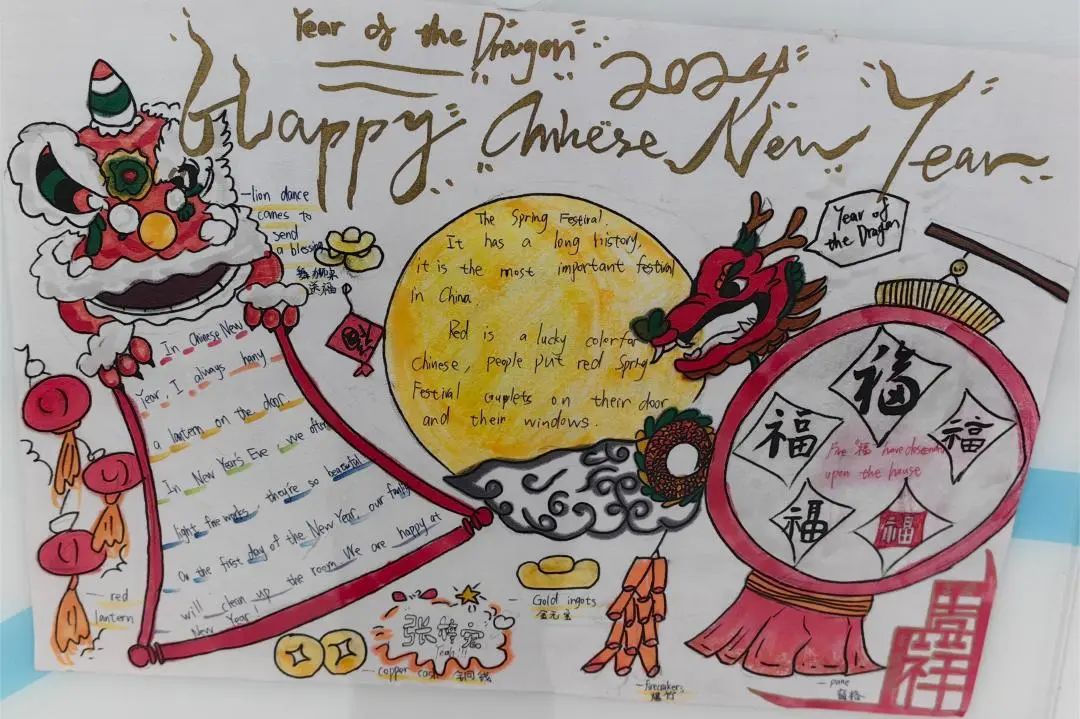 Year of the Dragon
2024
Happy Chinese New Year
lion dance
comes to
send
a blessing
送福
The Spring Festival.
It has a long history,
it is the most important festival
in China.
Red is a lucky color for
Chinese, people put red Spring
Festival couplets on their door
and their windows.
Year of
the Dragon
In Chinese New
Year, I always hang
a lantern on the door
In New Year's Eve we often
light fire works, they're so beautiful
On the first day of the New Year, our family
will clean up the room. We are happy at
New Year!
red
lantern
福
福
福
福
福
Five 福 have descended
upon the house
Gold ingots
金元宝
张
Yeah!!!
copper cash
firecrakers
爆竹
pane
窗格
吉祥